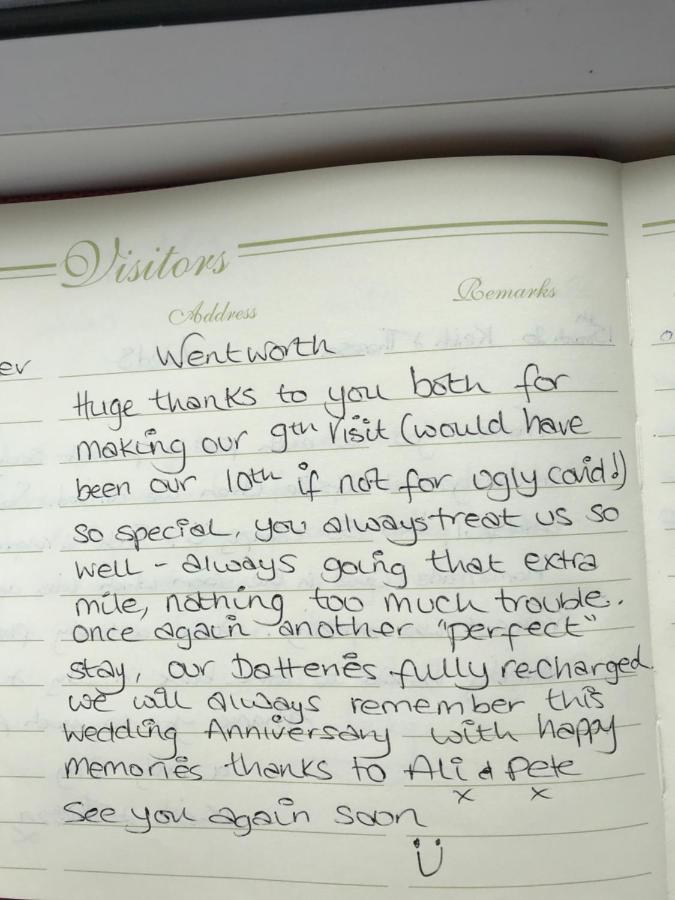 Visitors
Address
Remarks
er
Wentworth
Huge thanks to you both for
making our 9th visit (would have
been our 10th if not for ugly covid!)
so special, you always treat us so
well - always going that extra
mile, nothing too much trouble.
once again another "perfect"
stay, our batteries fully recharged
we will always remember this
wedding Anniversary with happy
memories thanks to Ali & Pete
x x
See you again soon